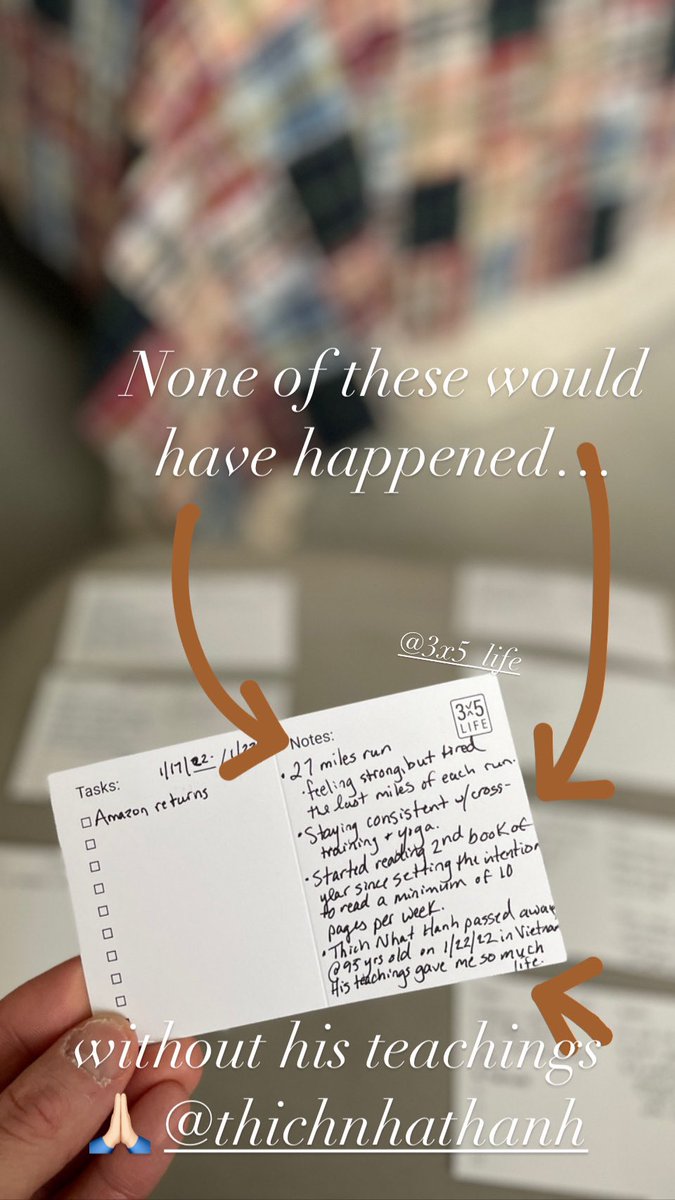 None of these would
have happened...
@3x5_life
3x5
LIFE
Tasks:
1/17/22
Amazon returns
Notes:
• 27 miles run
· feeling strong, but tired
the last miles of each run.
• Staying consistent w/cross-
training + yoga.
• Started reading 2nd book of
year since setting the intention
to read a minimum of 10
pages per week.
• Thich Nhat Hanh passed away
@95 yrs old on 1/22/22 in Vietnam
His teachings gave me so much
life.
without his teachings
🙏🏻 @thichnhathanh